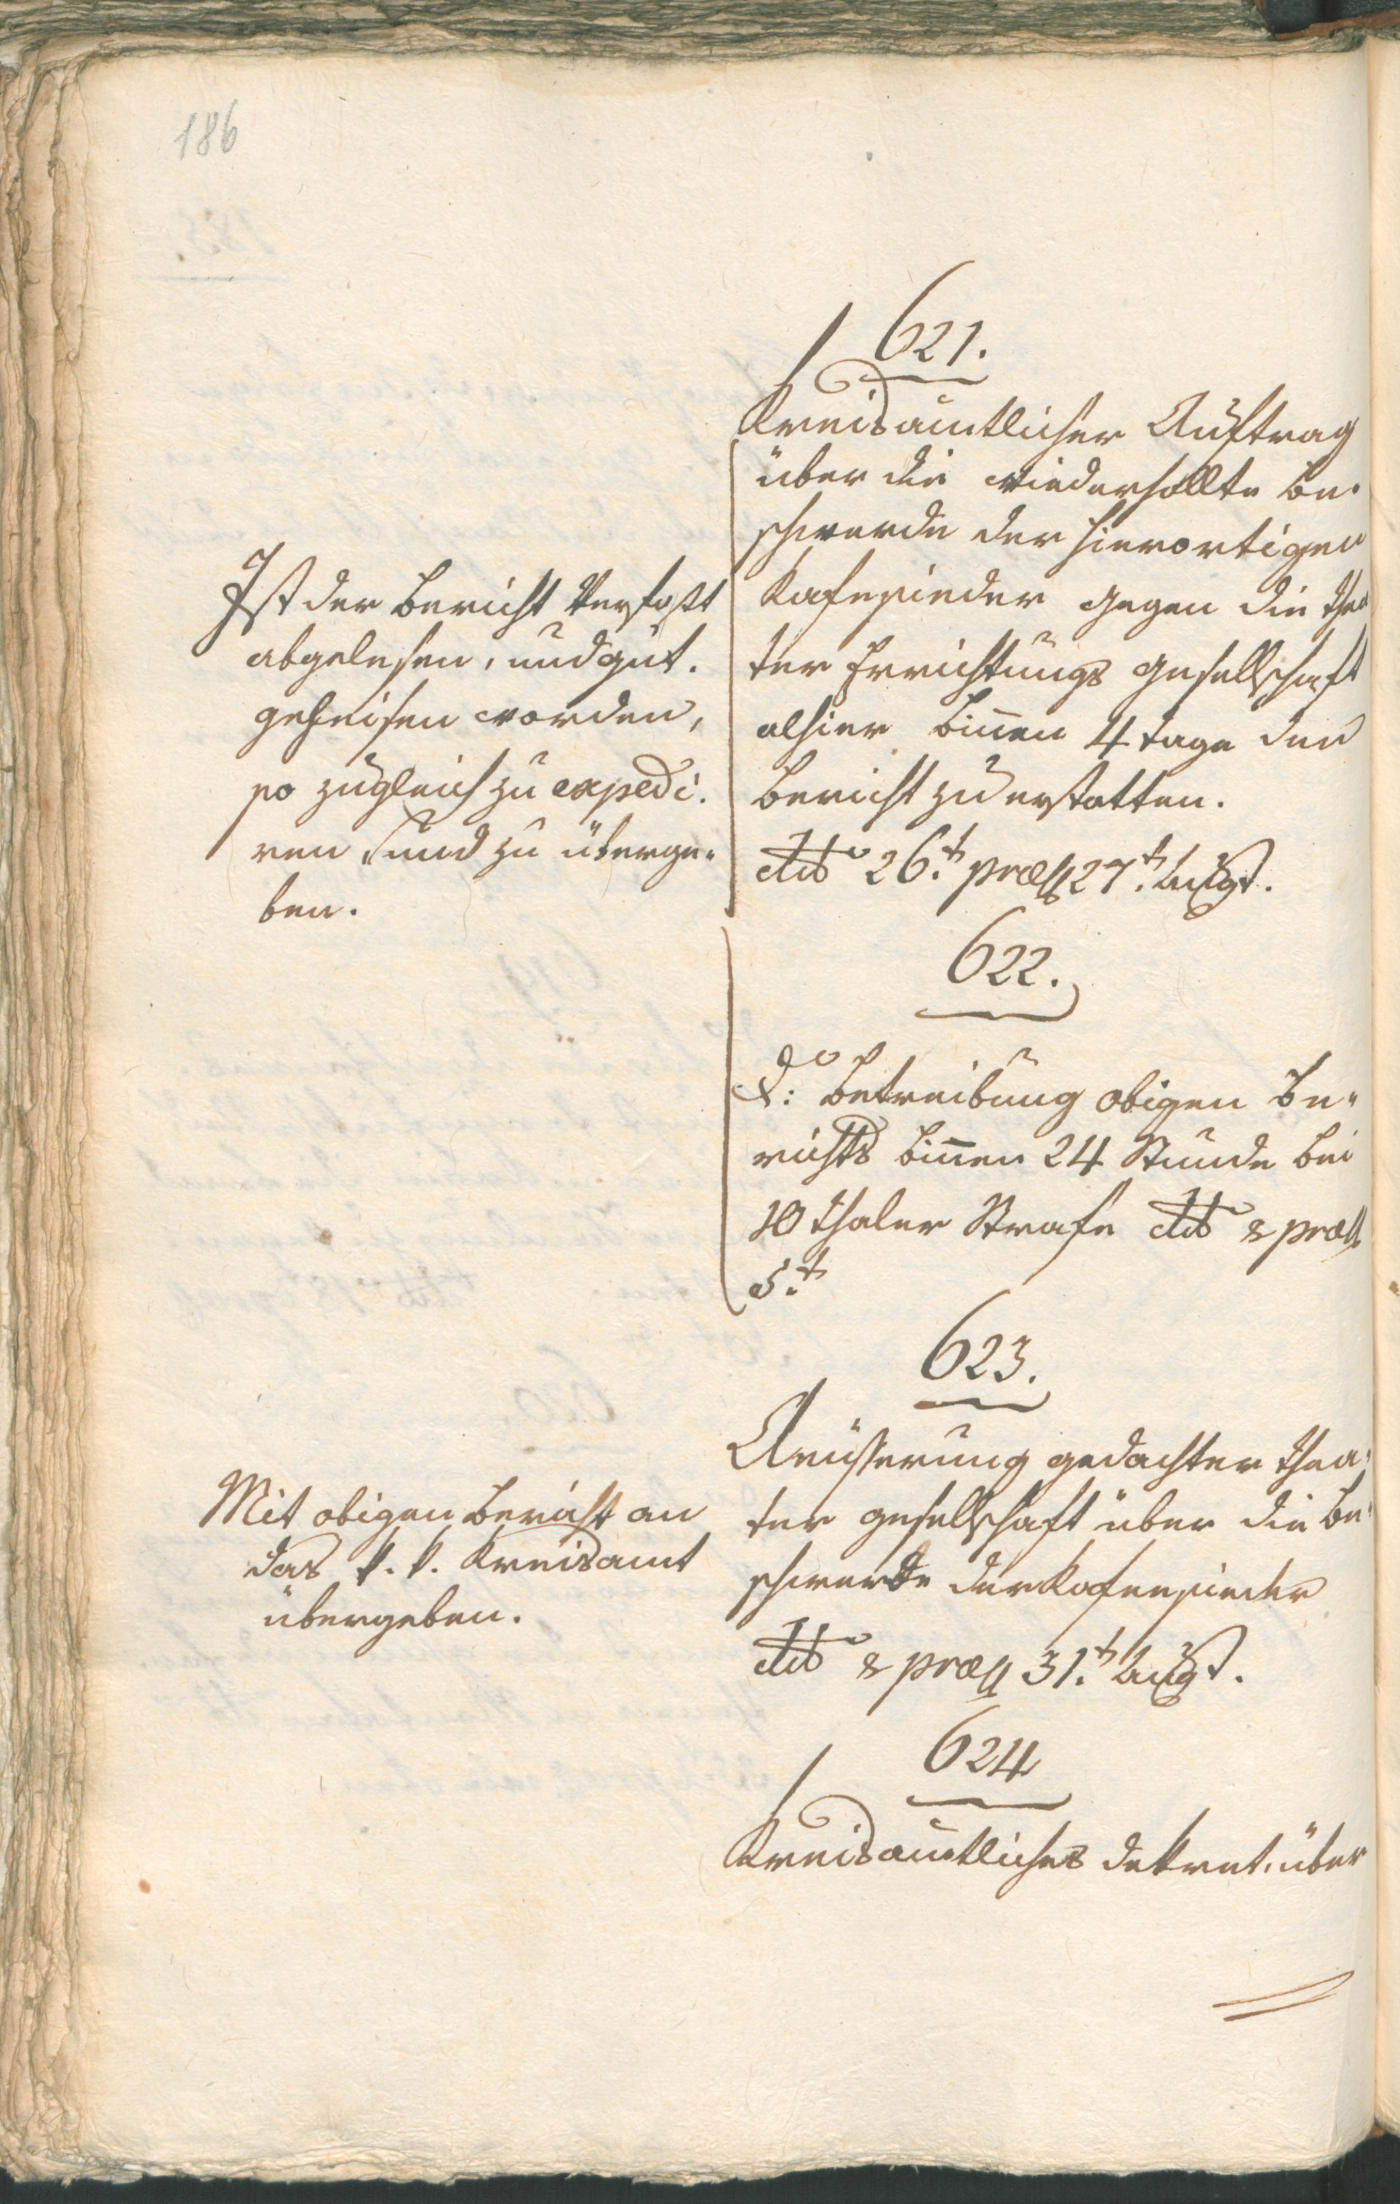 186
621.
Kreisämtlicher Auftrag
über die wiederhollte Be-
schwerde der hierortigen
Kafesieder gegen die Thea
ter Errichtungs gesellschaft
alhier binen 4 tage den
Bericht zu erstatten.
dto 26.t præs 27.t Augst.
Ist der Bericht Verfaßt
abgelesen, und gut-
geheisen worden,
so zugleich zu expedi-
ren, und zu überge-
ben.
622.
do: Betreibung obigen Be-
richts binen 24 Stunde bei
10 Thaler Strafe dto & præs
5.t
623.
Aeüsserung gedachter Thea-
ter gesellschaft über die Be-
schwerde der Kafeesieder
dto & præs 31.t Augst.
Mit obigen Bericht an
das k. k. Kreisamt
übergeben.
624
Kreisämtliches dekret über